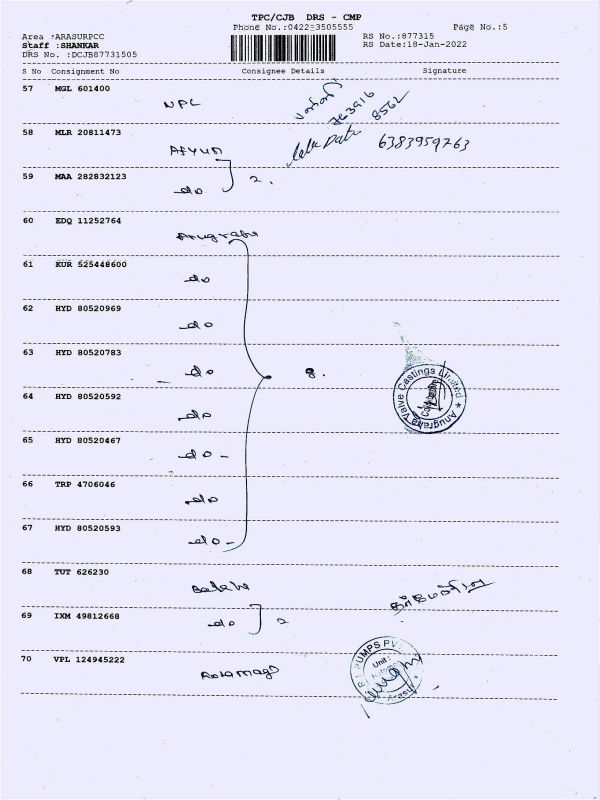 TPC/CJB DRS - CMP
Phone No.:0422-3505555 Page No.:5
Area :ARASURPCC RS No.:877315
Staff :SHANKAR RS Date:18-Jan-2022
DRS No. :DCJB87731505
S No Consignment No Consignee Details Signature
57 MGL 601400
NPL
763916
8562
58 MLR 20811473
6383959763
59 MAA 282832123
do 2.
60 EDQ 11252764
Anugraha
61 KUR 525448600
do
62 HYD 80520969
do
63 HYD 80520783
do 8.
Anugraha Valve Castings Limited
64 HYD 80520592
do
65 HYD 80520467
do -
66 TRP 4706046
do
67 HYD 80520593
do -
68 TUT 626230
69 IXM 49812668
do 2
70 VPL 124945222
PUMPS PV
Unit